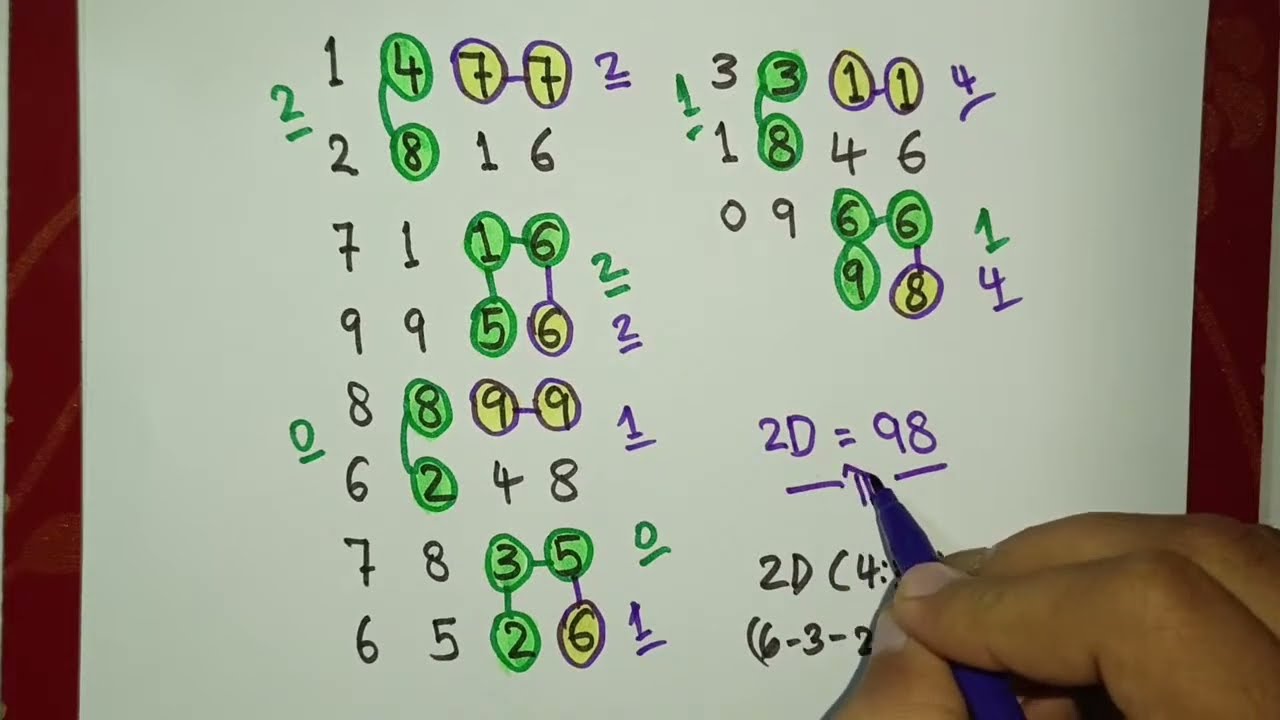 1 4 7-7 2
2
2 8 1 6
7 1 1-6
2
9 9 5 6 2
8 8 9-9 1
0
6 2 4 8
7 8 3-5 0
6 5 2 6 1
3 3 1-1 4
1
1 8 4 6
0 9 6-6 1
9 8 4
2D = 98
2D (4:
(6-3-2